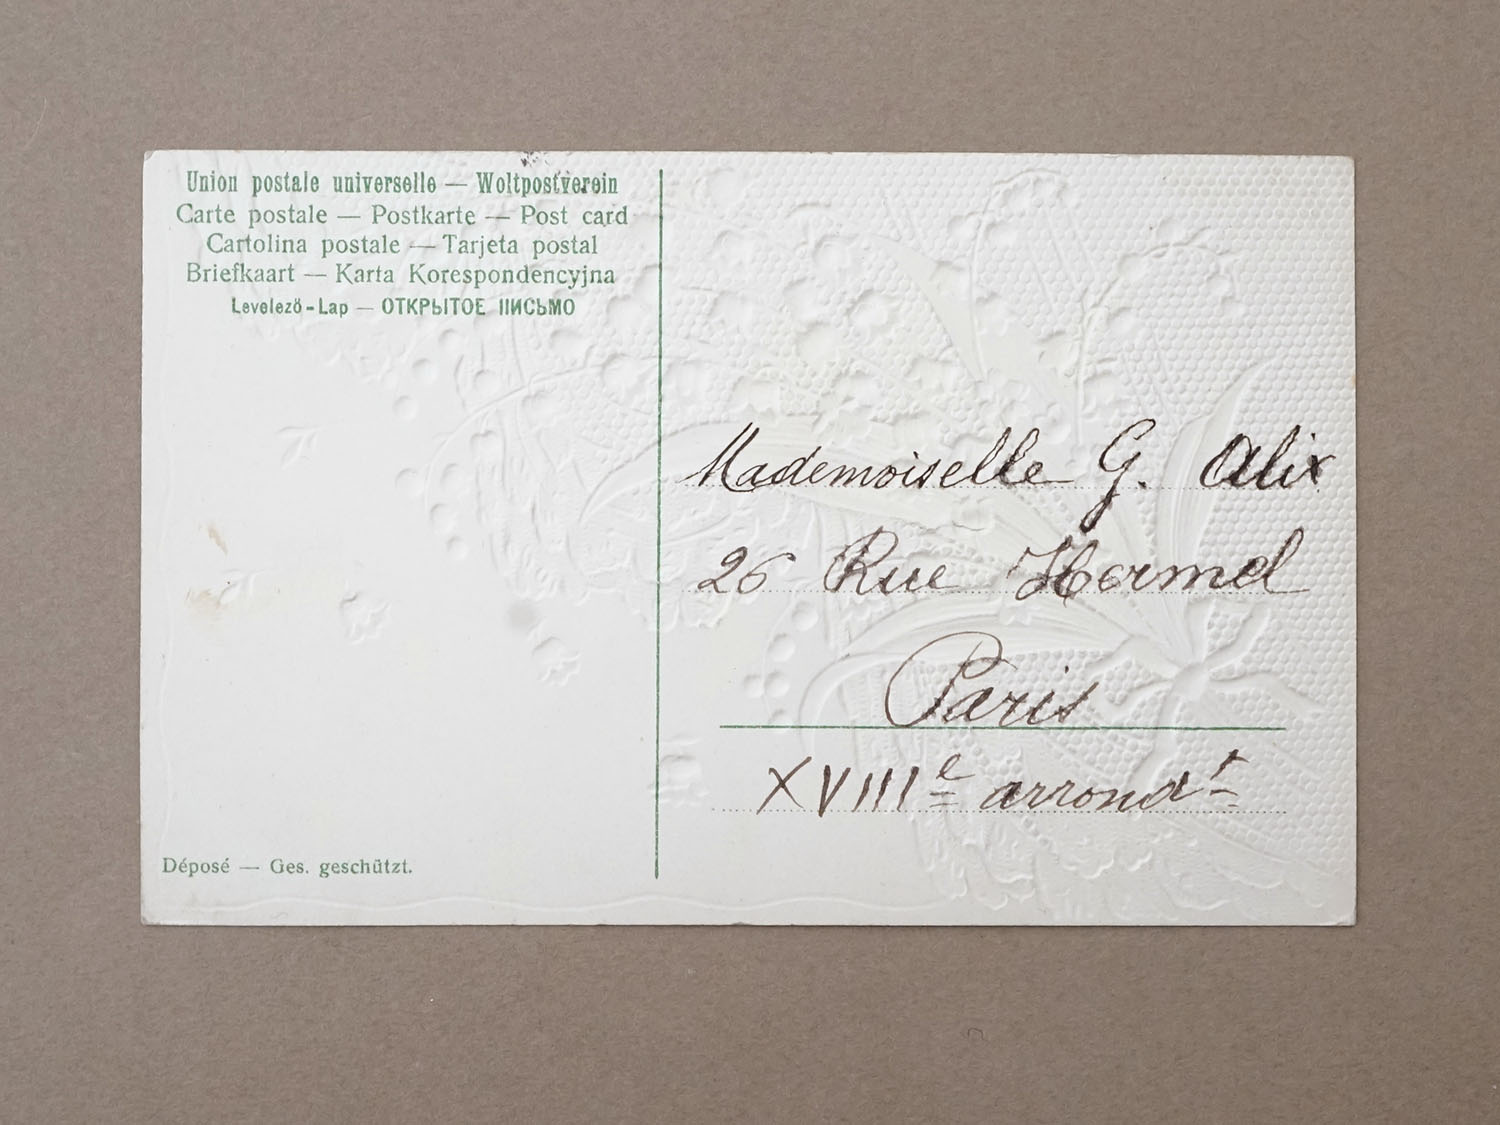 Union postale universelle — Woltpostverein
Carte postale — Postkarte — Post card
Cartolina postale — Tarjeta postal
Briefkaart — Karta Korespondencyjna
Levelező-Lap — ОТКРЫТОЕ ПИСЬМО
Mademoiselle G. Alix
26 Rue Hermel
Paris
XVIIIe arrondt
Déposé — Ges. geschützt.